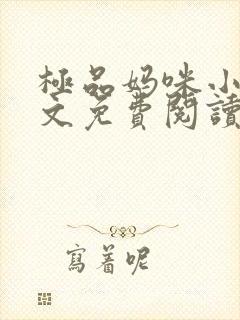 極品妈咪小
文免費閱讀
寫着呢